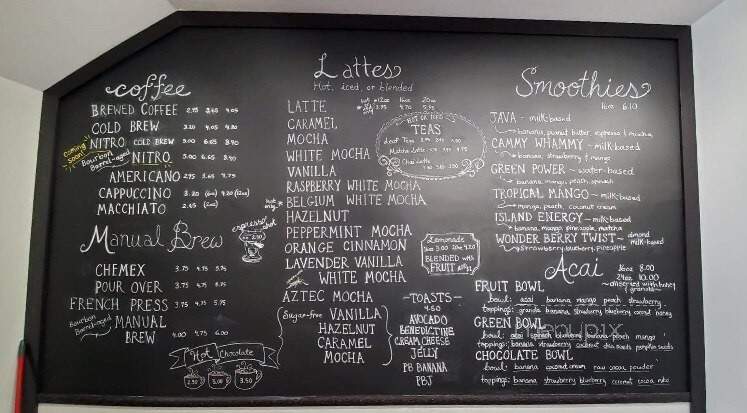 coffee
BREWED COFFEE 2.75 3.45 4.05
COLD BREW 3.20 4.05 4.80
Coming soon!
NITRO COLD BREW 5.00 5.65 5.90
Bourbon Barrel-aged NITRO 5.00 5.65 5.90
AMERICANO 2.95 3.45 3.75
CAPPUCCINO 3.80
MACCHIATO 2.65
espresso shot
Manual Brew
CHEMEX 3.75 4.75 5.75
POUR OVER 3.75 4.75 5.75
FRENCH PRESS 3.75 4.75 5.75
Bourbon Barrel-aged MANUAL
BREW 4.00 4.75 6.00
Hot Chocolate
2.50 3.00 3.50
Lattes
Hot, iced, or blended
12oz 16oz 20oz
LATTE
CARAMEL
MOCHA
WHITE MOCHA
VANILLA
RASPBERRY WHITE MOCHA
hot only * BELGIUM WHITE MOCHA
HAZELNUT
PEPPERMINT MOCHA
ORANGE CINNAMON
LAVENDER VANILLA
WHITE MOCHA
AZTEC MOCHA
Sugar-free VANILLA
HAZELNUT
CARAMEL
MOCHA
HOT OR ICED
TEAS
Matcha Latte
Chai Latte
Lemonade
16oz 3.00 20oz 4.50
BLENDED with
FRUIT
-TOASTS-
4.50
AVOCADO
BENEDICTINE
CREAM CHEESE
JELLY
PB BANANA
PBJ
Smoothies
16oz 6.10
JAVA - milk-based
banana, peanut butter, espresso & mocha
CAMMY WHAMMY - milk-based
banana, strawberry & mango
GREEN POWER - water-based
banana, mango, peach, spinach
TROPICAL MANGO - milk-based
mango, peach, coconut cream
ISLAND ENERGY - milk-based
banana, mango, pineapple, matcha
WONDER BERRY TWIST - almond milk-based
strawberry, blueberry, pineapple
Acai
16oz 8.00
24oz 10.00
FRUIT BOWL
bowl: acai banana mango peach strawberry
toppings: granola banana strawberry blueberry coconut honey
GREEN BOWL
bowl: acai spinach blueberry banana peach mango
toppings: banana strawberry coconut chia seeds pumpkin seeds
CHOCOLATE BOWL
bowl: banana coconut cream raw cacao powder
toppings: banana strawberry blueberry coconut cacao nibs
menupix